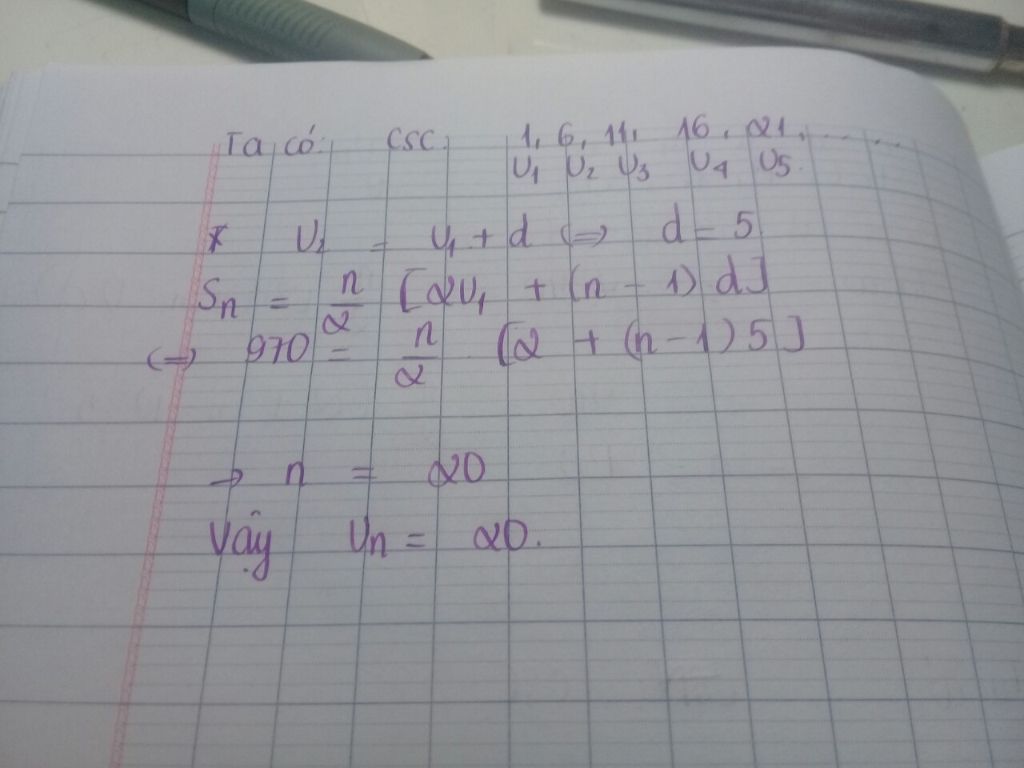 Ta có: CSC. 1, 6, 11, 16, 21, .......
U₁ U₂ U₃ U₄ U₅.
* U₂ = U₁ + d <=> d = 5
Sₙ = n/2 [2U₁ + (n - 1) d]
<=> 970 = n/2 [2 + (n - 1) 5]
→ n = 20
Vậy Uₙ = 20.